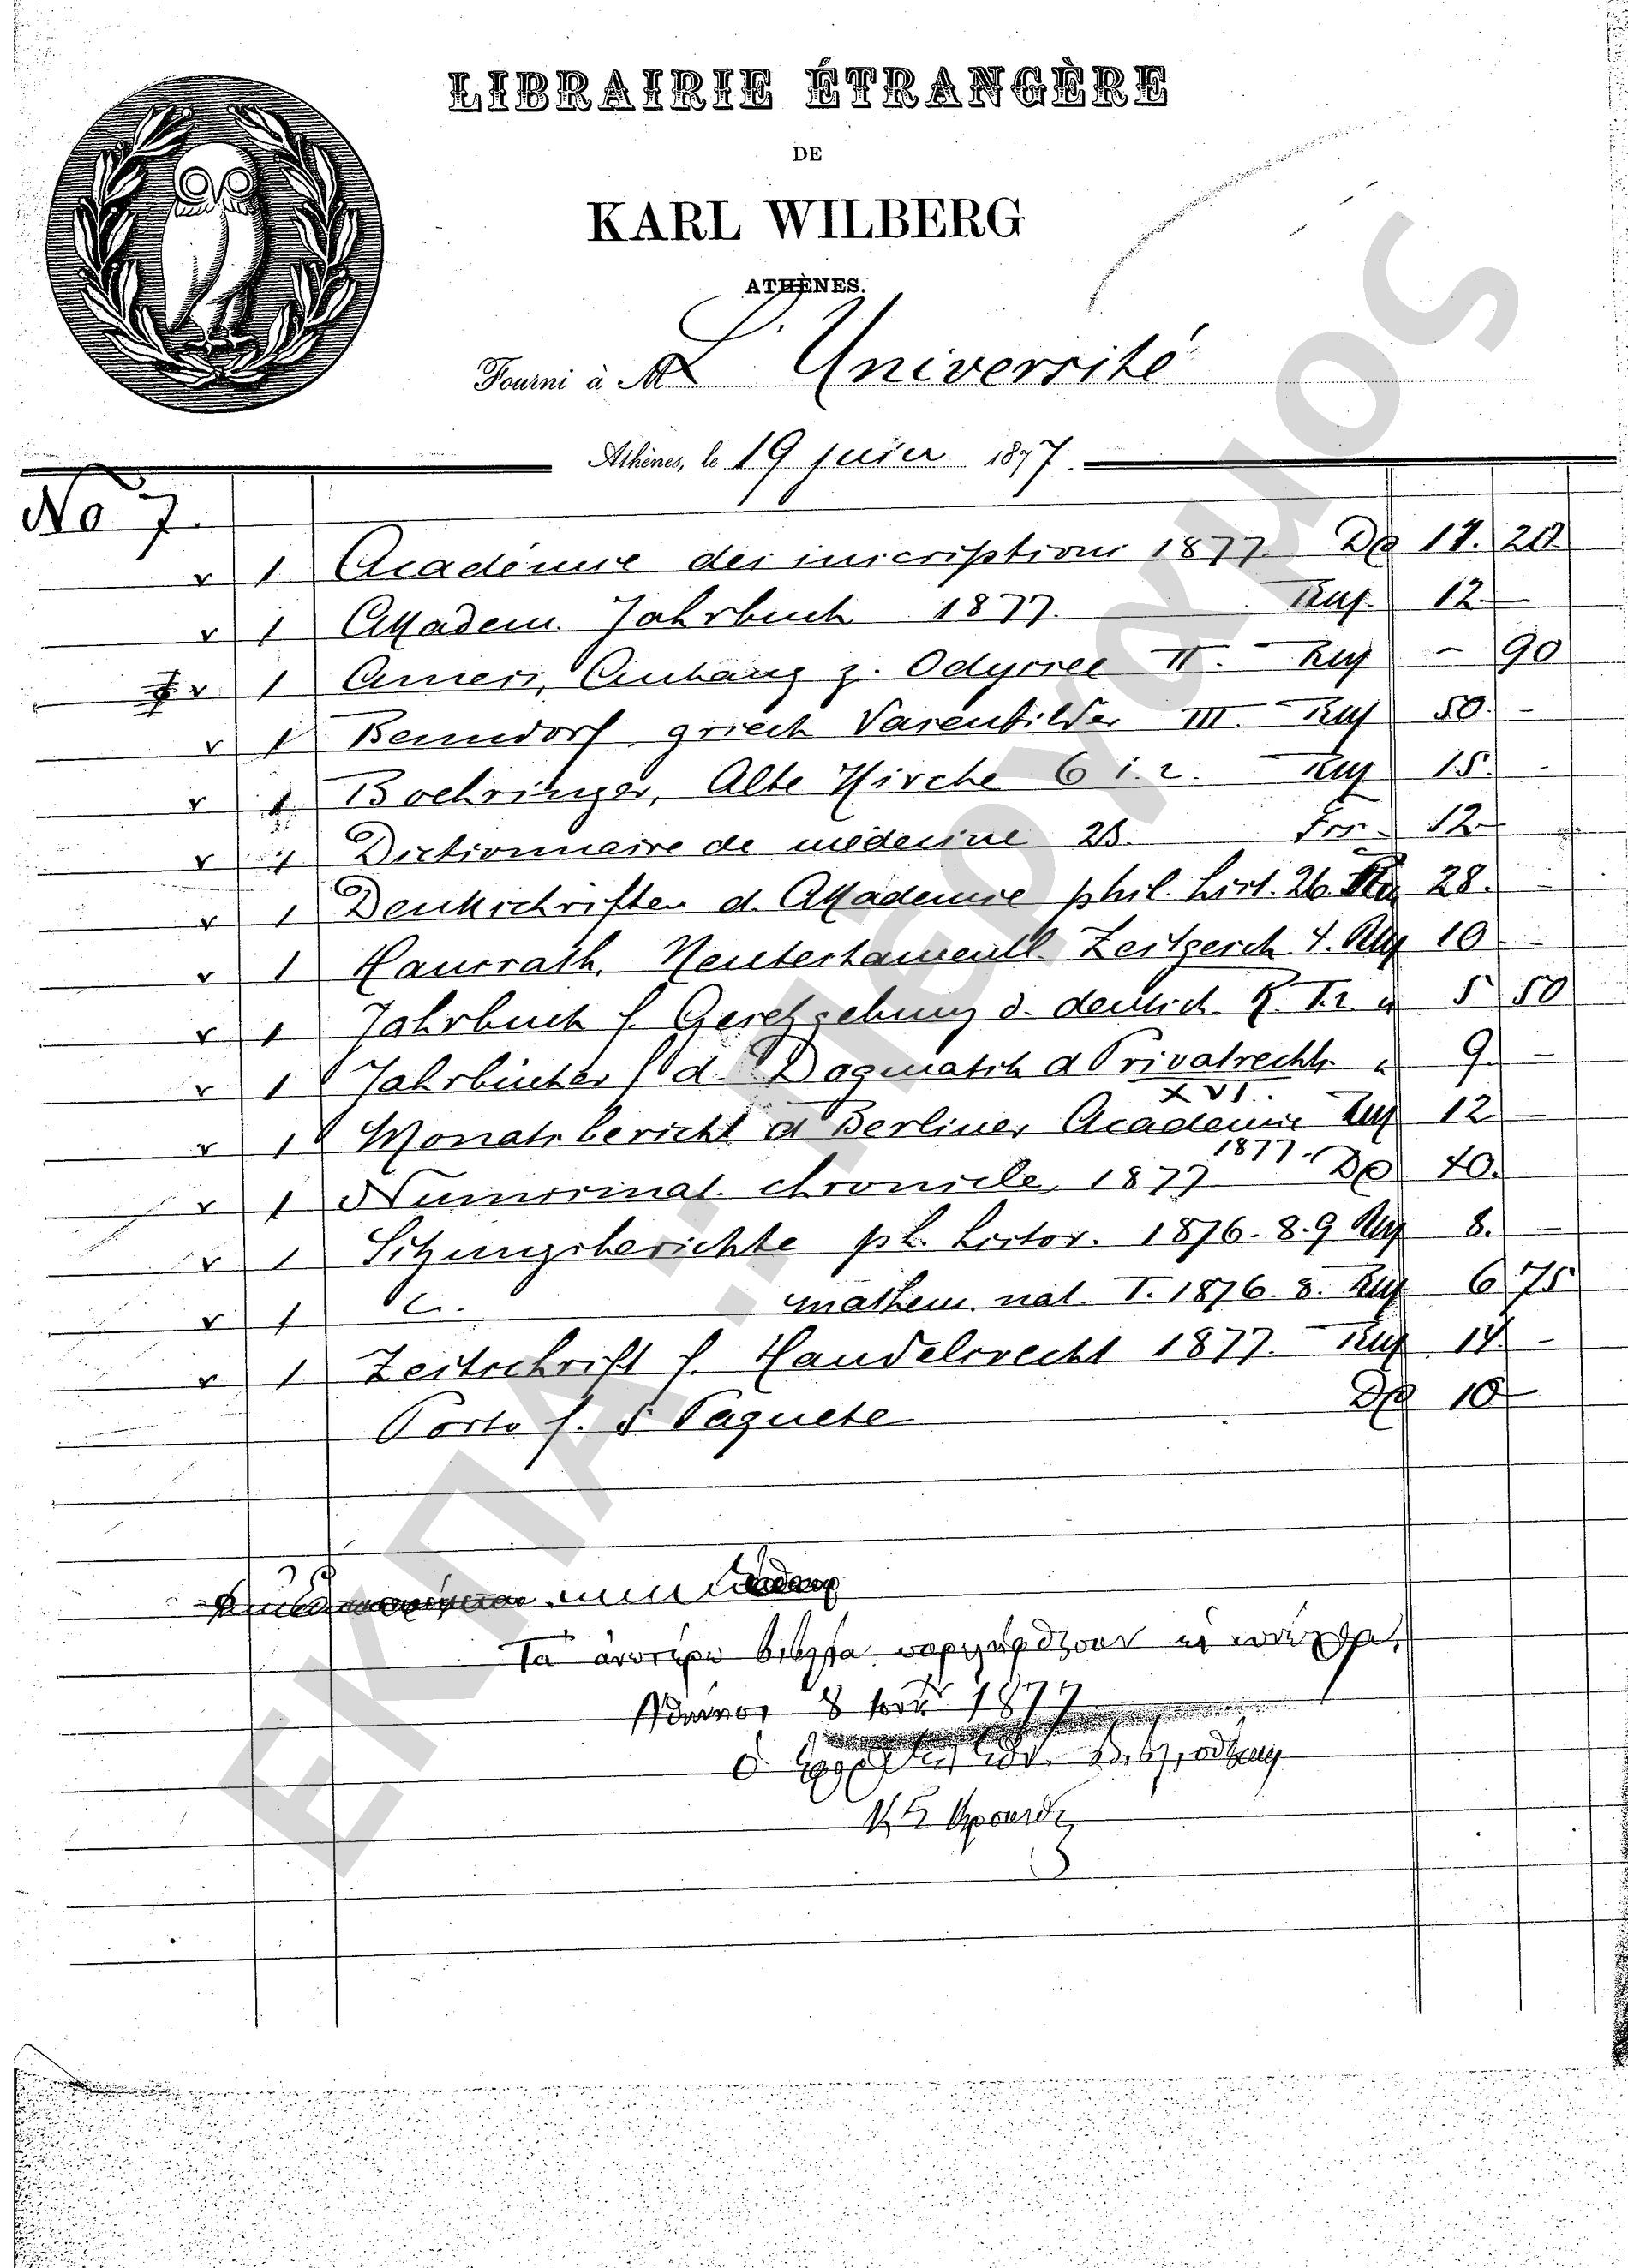 LIBRAIRIE ÉTRANGÈRE
DE
KARL WILBERG
ATHÈNES.
Fourni à M L'Université
Athènes, le 19 juin 1877.
No 7.
v 1 Académie des inscriptions 1877 20
v 1 Akadem. Jahrbuch 1877. 12 —
v 1 Ameis, Anhang z. Odyssee II. - 90
v 1 Benndorf griech Vasenbilder III. 50. -
v 1 Boehringer, Alte Kirche 6 15. -
v 1 Dictionnaire de médecine 23. 12 —
v 1 Denkschriften d. Akademie phil. hist. 26. 28. -
v 1 Hausrath, Neutestamentl. Zeitgesch 4. 10 -
v 1 Jahrbuch f. Gesetzgebung d. deutsch. R. 5 50
v 1 Jahrbücher f d. Dogmatik d Privatrechts 9. -
XVI.
v 1 Monatsbericht d Berliner Academie 12 —
1877.
v 1 Numismat. chronicle, 1877 40.
v 1 Sitzungsberichte ph. histor. 1876. 8.9 8. —
v 1 mathem. nat. 1876. 8. 6 75
v 1 Zeitschrift f. Handelsrecht 1877. 14. -
Porto f. 5 Paquete 10 —
Τὰ ἀνωτέρω βιβλία παρελήφθησαν
8 1877
ὁ
ΕΚΠΑ.: ΙΕΡΟΧΑΜΟΣ